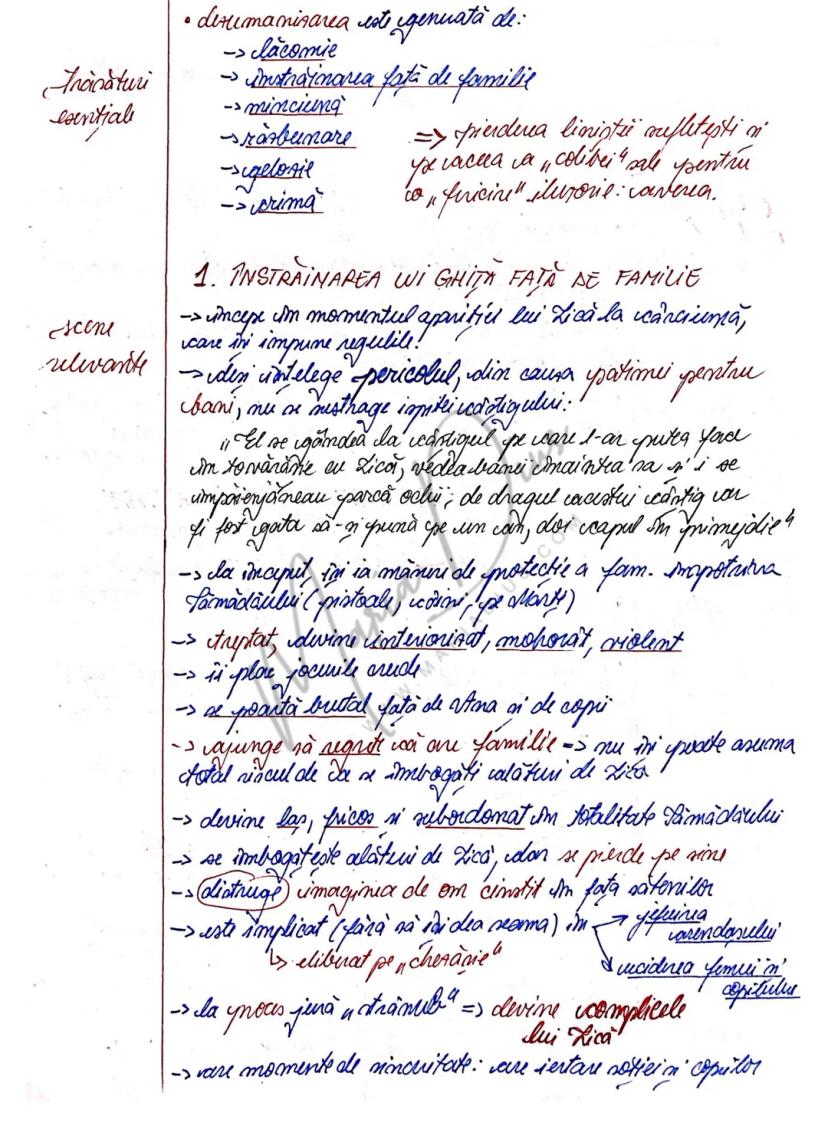 Trăsături
esențiale
• dezumanizarea este generată de:
-> lăcomie
-> înstrăinarea față de familie
-> minciună
-> răzbunare
-> gelozie
-> crimă
=> pierderea liniștii sufletești și
pe aceea a „colibei" sale pentru
o „fericire" iluzorie: averea.
scene
relevante
1. ÎNSTRĂINAREA LUI GHIȚĂ FAȚĂ DE FAMILIE
-> începe în momentul apariției lui Lică la cârciumă,
care își impune regulile!
-> deși înțelege pericolul, din cauza patimei pentru
bani, nu se sustrage ispitei câștigului:
„El se gândea la câștigul pe care l-ar putea face
în tovărășie cu Lică, vedea banii înaintea sa și i se
împăienjeneau parcă ochii; de dragul acestui câștig ar
fi fost gata să-și pună pe un an, doi capul în primejdie"
-> la început, își ia măsuri de protecție a fam. împotriva
Sămădăului (pistoale, câini, pe Marți)
-> treptat, devine interiorizat, mohorât, violent
-> îi plac jocurile crude
-> se poartă brutal față de Ana și de copii
-> ajunge să regrete că are familie => nu își poate asuma
total riscul de a se îmbogăți alături de Lică
-> devine laș, fricos și subordonat în totalitate Sămădăului
-> se îmbogățește alături de Lică, dar se pierde pe sine
-> distruge imaginea de om cinstit în fața sătenilor
-> este implicat (fără să își dea seama) în
-> jefuirea
arendașului
uciderea femeii și
copilului
↳ eliberat pe „chezășie"
-> la proces jură „strâmb" => devine complicele
lui Lică
-> are momente de sinceritate: cere iertare soției și copiilor
Maria Dus
WWW.MARIADUS.COM